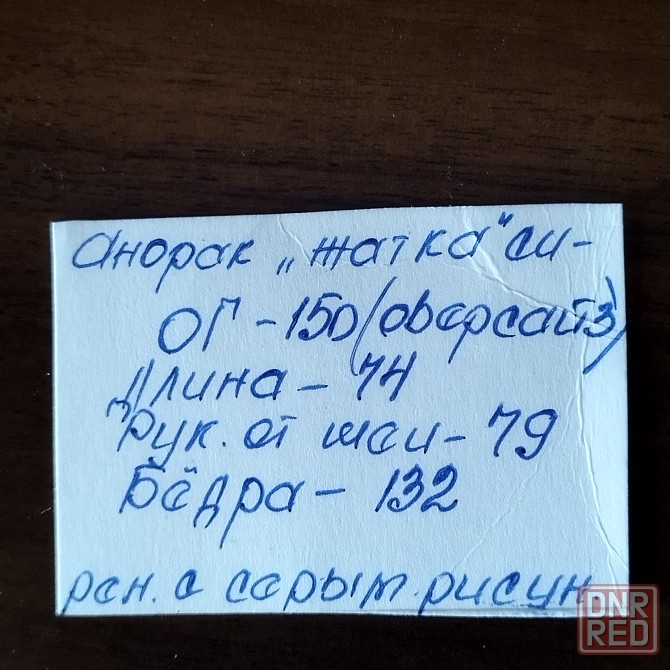 Анорак „жатка" си-
ОГ - 150 (оверсайз)
Длина - 74
Рук. от шеи - 79
Бёдра - 132
рен. с серым рисун
DNR
RED